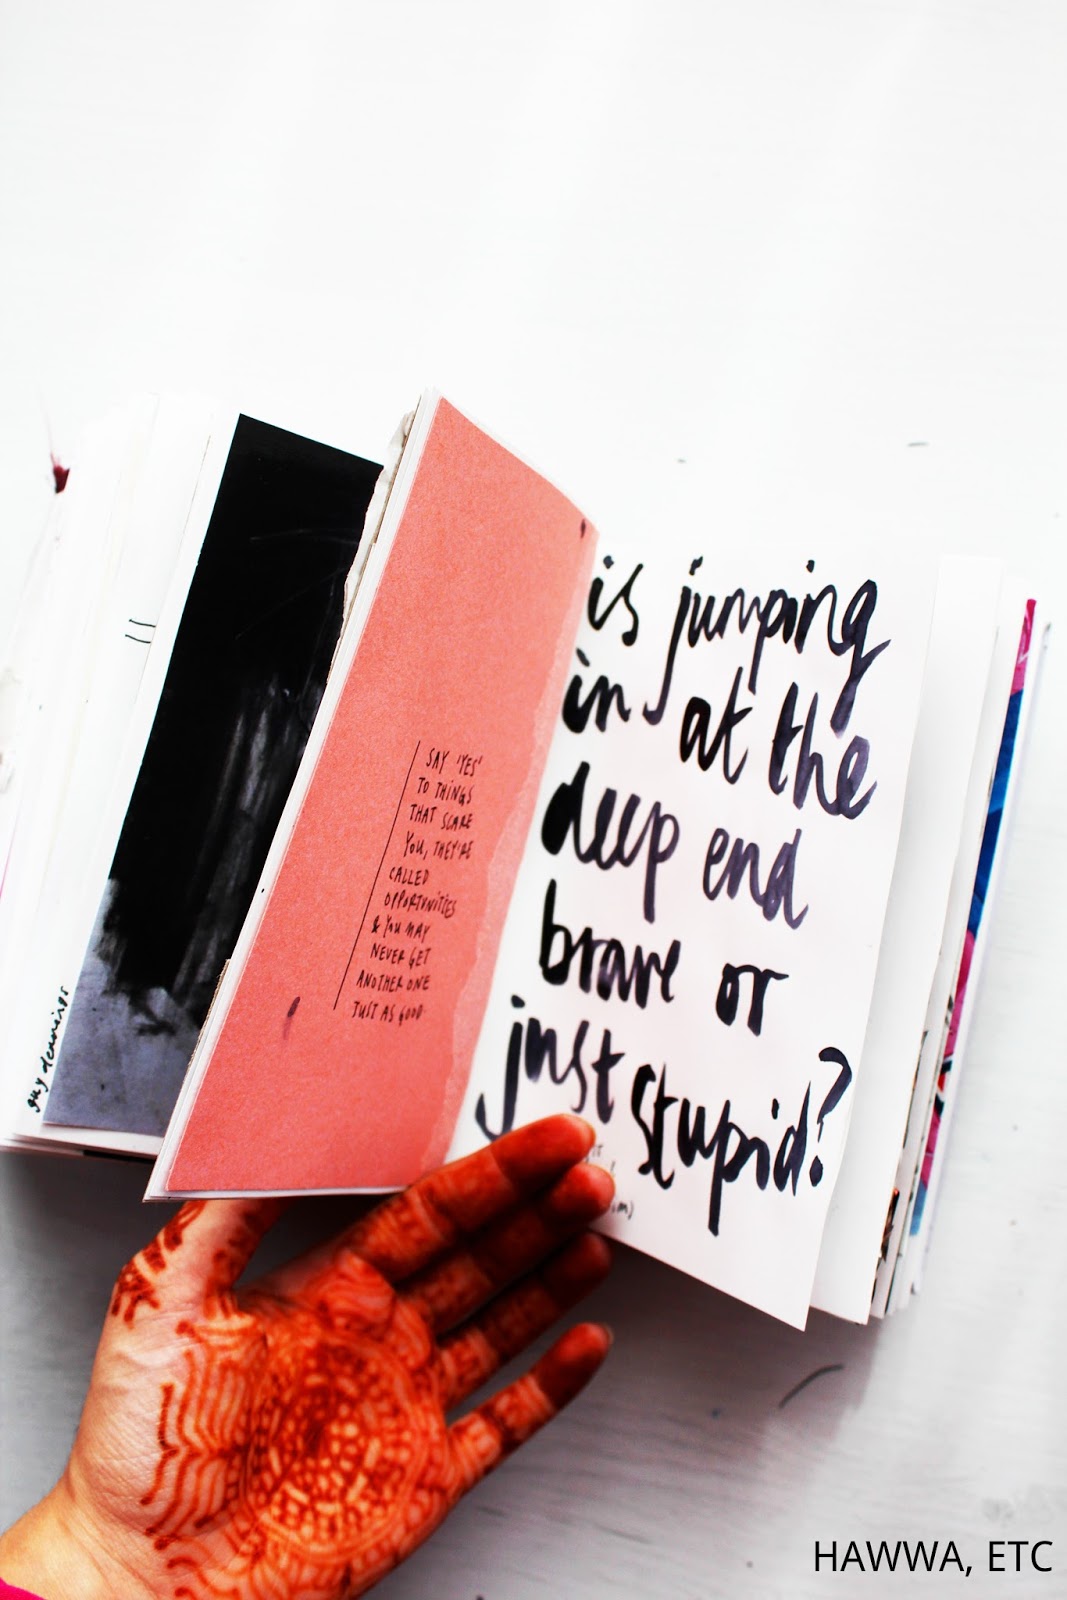 guy dennings
SAY 'YES'
TO THINGS
THAT SCARE
YOU, THEY'RE
CALLED
OPPORTUNITIES
& YOU MAY
NEVER GET
ANOTHER ONE
JUST AS GOOD
is jumping
in at the
deep end
brave or
just stupid?
HAWWA, ETC